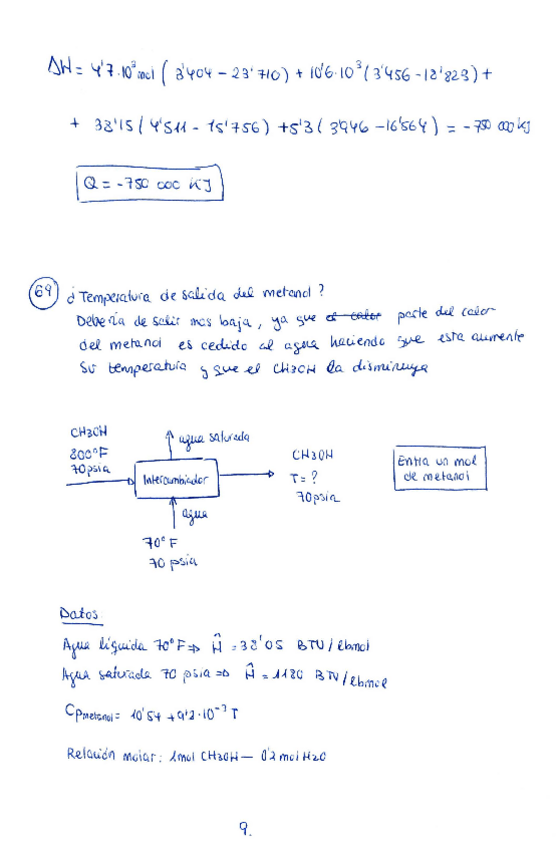 ΔH = 4'7·10³mol ( 3'404 - 23'710) + 10'6·10³ (3'456 - 18'823) +
+ 33'15 ( 4'511 - 15'756) + 5'3 ( 3'946 - 16'564) = -750 000 KJ
Q = -750 000 KJ
69 ¿Temperatura de salida del metanol?
Debería de salir mas baja, ya que parte del calor
del metanol es cedido al agua haciendo que esta aumente
su temperatura y que el CH3OH la disminuya
CH3OH
800°F
70psia
agua saturada
Intercambiador
agua
70°F
70 psia
CH3OH
T = ?
70psia
Entra un mol
de metanol
Datos
Agua líquida 70°F ⇒ Ĥ = 38'05 BTU / lbmol
Agua saturada 70 psia ⇒ Ĥ = 1180 BTU / lbmol
Cpmetanol = 10'54 + 9'2·10⁻³ T
Relación molar: 1mol CH3OH — 0'2 mol H2O
9.